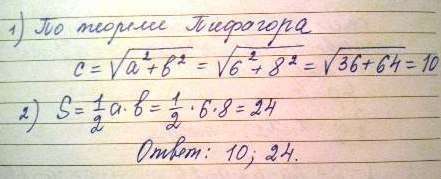 1) По теореме Пифагора
c = √(a² + b²) = √(6² + 8²) = √(36 + 64) = 10
2) S = 1/2 a · b = 1/2 · 6 · 8 = 24
Ответ: 10; 24.